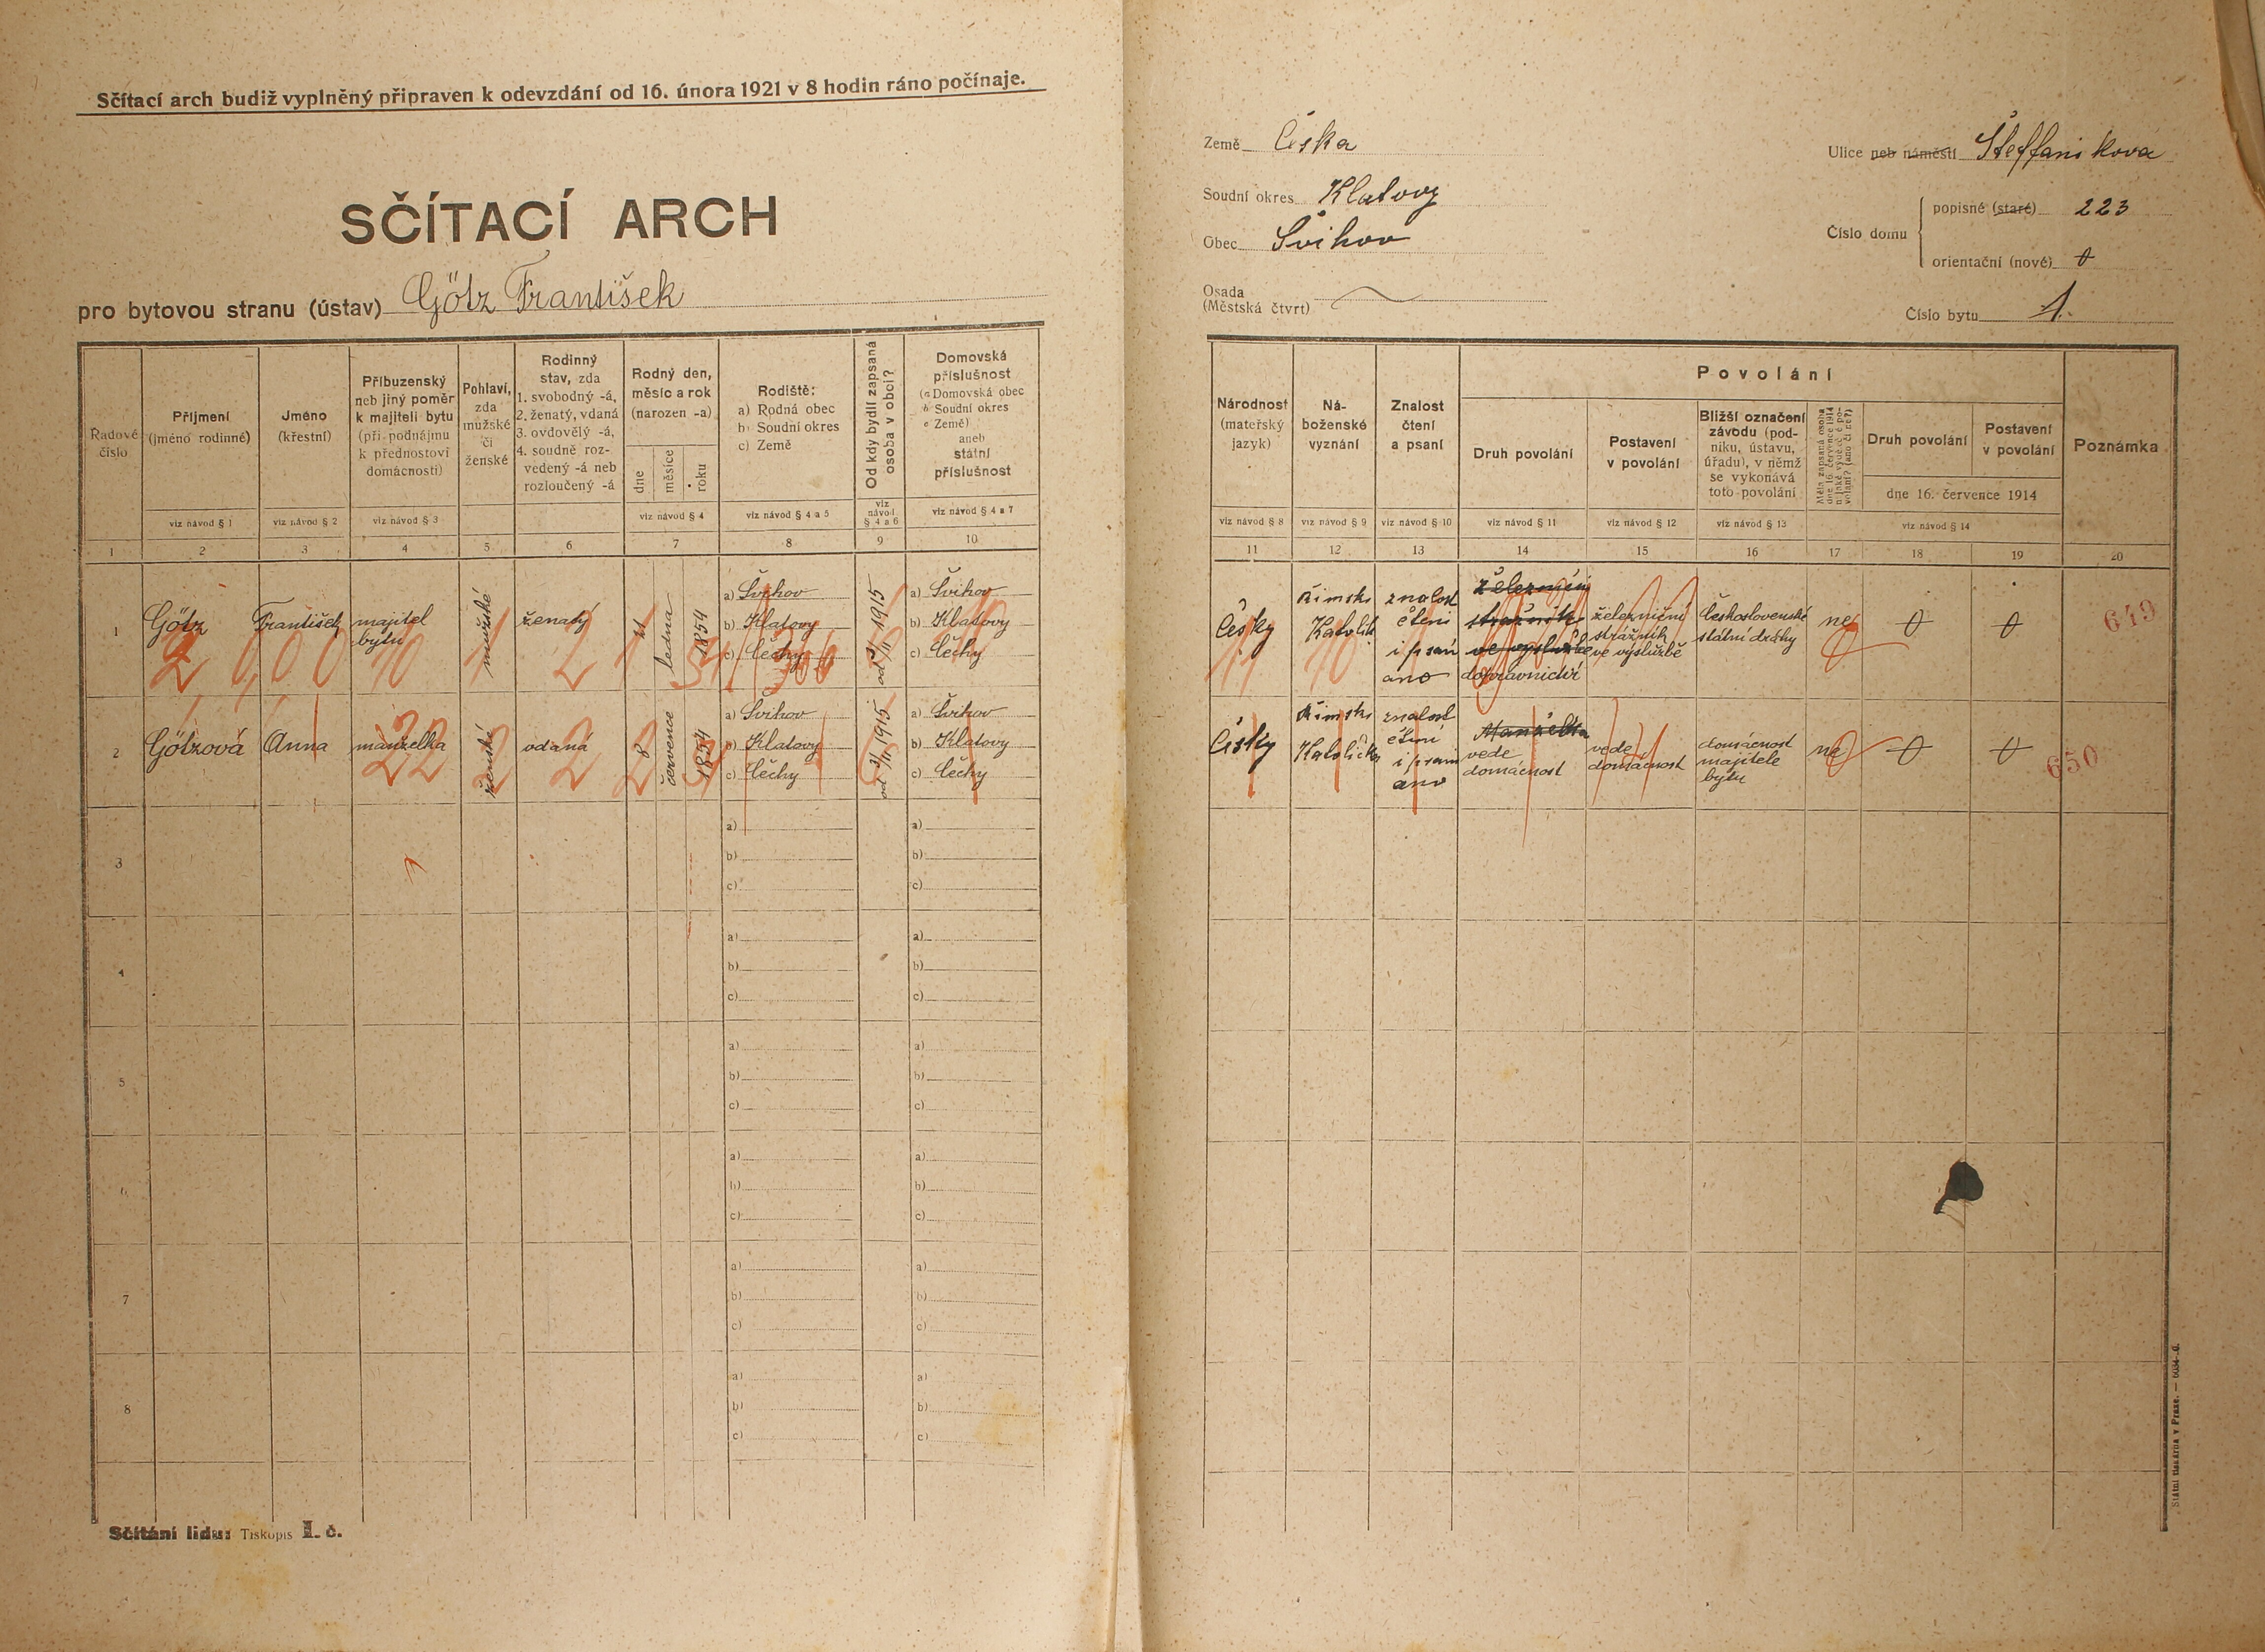 Sčítací arch budiž vyplněný připraven k odevzdání od 16. února 1921 v 8 hodin ráno počínaje.
SČÍTACÍ ARCH
pro bytovou stranu (ústav) Götz František
Země Česka
Soudní okres Klatovy
Obec Švihov
Osada
(Městská čtvrt)
Ulice neb náměstí Šteffanikova
Číslo domu
popisné (staré) 223
orientační (nové) 0
Číslo bytu 1.
Řadové
číslo
1
Příjmení
(jméno rodinné)
viz návod § 1
2
Jméno
(křestní)
viz návod § 2
3
Příbuzenský
neb jiný poměr
k majiteli bytu
(při podnájmu
k přednostovi
domácnosti)
viz návod § 3
4
Pohlaví,
zda
mužské
či
ženské
5
Rodinný
stav, zda
1. svobodný -á,
2. ženatý, vdaná
3. ovdovělý -á,
4. soudně roz-
vedený -á neb
rozloučený -á
6
Rodný den,
měsíc a rok
(narozen -a)
dne
měsíce
roku
viz návod § 4
7
Rodiště:
a) Rodná obec
b) Soudní okres
c) Země
viz návod § 4 a 5
8
Od kdy bydlí zapsaná
osoba v obci?
viz
návod
§ 4 a 6
9
Domovská
příslušnost
(a Domovská obec
b Soudní okres
c Země)
aneb
státní
příslušnost
viz návod § 4 a 7
10
Národnost
(mateřský
jazyk)
viz návod § 8
11
Ná-
boženské
vyznání
viz návod § 9
12
Znalost
čtení
a psaní
viz návod § 10
13
Povolání
Druh povolání
viz návod § 11
14
Postavení
v povolání
viz návod § 12
15
Bližší označení
závodu (pod-
niku, ústavu,
úřadu), v němž
se vykonává
toto povolání
viz návod § 13
16
17
Druh povolání
Postavení
v povolání
dne 16. července 1914
viz návod § 14
18
19
Poznámka
20
1
Götz
František
majitel
bytu
mužské
ženatý
ledna
1854
a) Švihov
b) Klatovy
c) Čechy
1915
a) Švihov
b) Klatovy
c) Čechy
Česky
Římsko
Katolík
znalost
čtení
i psaní
ano
železniční
strážník
ve výslužbě
dopravnictví
železniční
strážník
ve výslužbě
Československé
státní dráhy
ne
0
0
649
2
Götzová
Anna
manželka
ženské
vdaná
8
července
1854
a) Švihov
b) Klatovy
c) Čechy
1915
a) Švihov
b) Klatovy
c) Čechy
Česky
Římsko
Katolička
znalost
čtení
i psaní
ano
Manželka
vede
domácnost
vede
domácnost
domácnost
majitele
bytu
ne
0
0
650
3
a)
b)
c)
a)
b)
c)
4
a)
b)
c)
a)
b)
c)
5
a)
b)
c)
a)
b)
c)
6
a)
b)
c)
a)
b)
c)
7
a)
b)
c)
a)
b)
c)
8
a)
b)
c)
a)
b)
c)
Sčítání lidu: Tiskopis I. č.
Státní tiskárna v Praze.